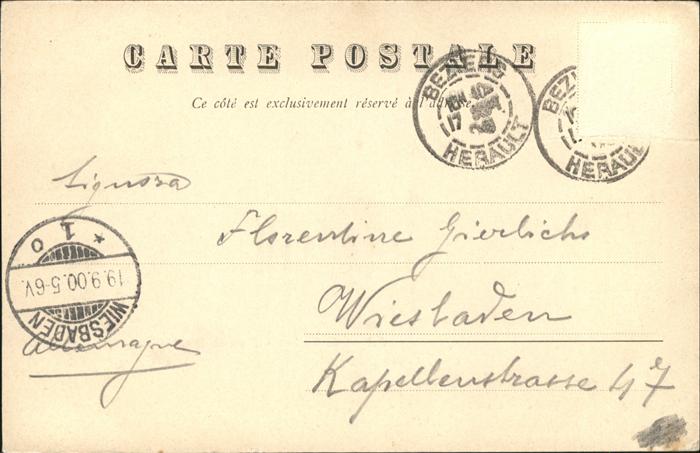 CARTE POSTALE
Ce côté est exclusivement réservé à l'adresse.
BEZIERS
17
HERAULT
BEZI
HERAUL
Florentine Gierlichs
1 o
19.9.00.5-6V.
WIESBADEN
Wiesbaden
Allemagne
Kapellenstrasse 47